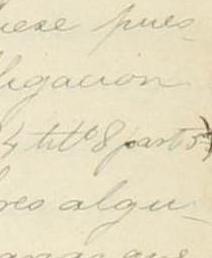 iese pues-
ligacion
4 titº 8 part 5ª)
res algu-